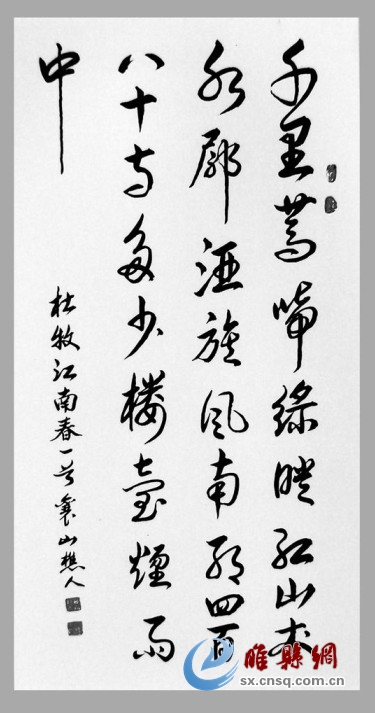 千里鶯啼綠映紅山村
水郭酒旗風南朝四百
八十寺多少樓臺煙雨
中
杜牧江南春一首襄山樵人
睢縣網
sx.cnsq.com.cn